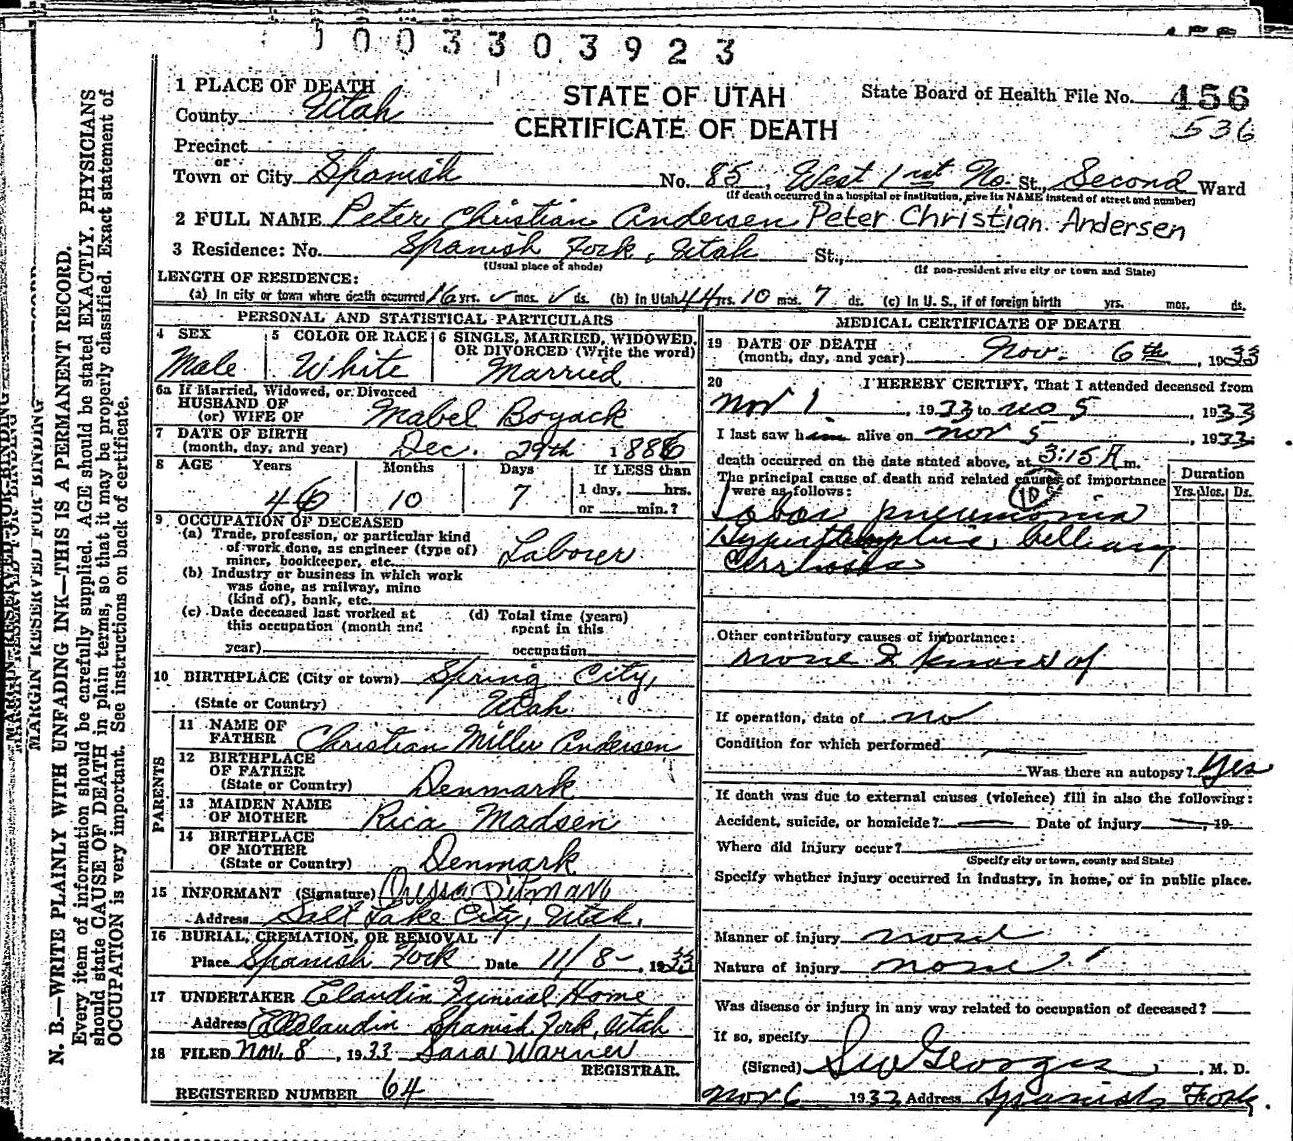 1003303923
1 PLACE OF DEATH
STATE OF UTAH
CERTIFICATE OF DEATH
State Board of Health File No. 456
536
County Utah
Precinct
or
Town or City Spanish No. 85, West 1st No. St., Second Ward
(If death occurred in a hospital or institution, give its NAME instead of street and number)
2 FULL NAME Peter Christian Andersen Peter Christian Andersen
3 Residence: No. Spanish Fork, Utah St.,
(Usual place of abode) (If non-resident give city or town and State)
LENGTH OF RESIDENCE:
(a) In city or town where death occurred 16 yrs. mos. ds. (b) In Utah 44 yrs. 10 mos. 7 ds. (c) In U. S., if of foreign birth yrs. mos. ds.
PERSONAL AND STATISTICAL PARTICULARS
4 SEX Male
5 COLOR OR RACE White
6 SINGLE, MARRIED, WIDOWED, OR DIVORCED (Write the word) Married
6a If Married, Widowed, or Divorced
HUSBAND OF
(or) WIFE OF Mabel Boyack
7 DATE OF BIRTH
(month, day, and year) Dec. 29th 1886
8 AGE Years Months Days If LESS than
46 10 7 1 day, hrs.
or min.?
9 OCCUPATION OF DECEASED
(a) Trade, profession, or particular kind
of work done, as engineer (type of)
miner, bookkeeper, etc. Laborer
(b) Industry or business in which work
was done, as railway, mine
(kind of), bank, etc.
(c) Date deceased last worked at
this occupation (month and
year)
(d) Total time (years)
spent in this
occupation
10 BIRTHPLACE (City or town) Spring City,
(State or Country) Utah
PARENTS
11 NAME OF
FATHER Christian Miller Andersen
12 BIRTHPLACE
OF FATHER
(State or Country) Denmark
13 MAIDEN NAME
OF MOTHER Rica Madsen
14 BIRTHPLACE
OF MOTHER
(State or Country) Denmark
15 INFORMANT (Signature)
Address Salt Lake City, Utah.
16 BURIAL, CREMATION, OR REMOVAL
Place Spanish Fork Date 11/8-, 1933
17 UNDERTAKER Claudin Funeral Home
Address Claudin Spanish Fork, Utah
18 FILED Nov. 8, 1933 Sara Warner
REGISTRAR.
REGISTERED NUMBER 64
MEDICAL CERTIFICATE OF DEATH
19 DATE OF DEATH
(month, day, and year) Nov. 6th, 1933
20 I HEREBY CERTIFY, That I attended deceased from
Nov 1, 1933 to no 5, 1933
I last saw him alive on nov 5, 1933
death occurred on the date stated above, at 3:15 A m.
The principal cause of death and related causes of importance
were as follows:
Duration
Yrs. Mos. Ds.
Lobar pneumonia
Cirrhosis
Other contributory causes of importance:
none I know of
If operation, date of no
Condition for which performed
Was there an autopsy? Yes
If death was due to external causes (violence) fill in also the following:
Accident, suicide, or homicide? Date of injury , 19
Where did injury occur?
(Specify city or town, county and State)
Specify whether injury occurred in industry, in home, or in public place.
Manner of injury none
Nature of injury none
Was disease or injury in any way related to occupation of deceased?
If so, specify
(Signed) Georges, M. D.
Nov 6 1933 Address Spanish Fork.
MARGIN RESERVED FOR BINDING
N. B.—WRITE PLAINLY WITH UNFADING INK—THIS IS A PERMANENT RECORD.
Every item of information should be carefully supplied. AGE should be stated EXACTLY. PHYSICIANS
should state CAUSE OF DEATH in plain terms, so that it may be properly classified. Exact statement of
OCCUPATION is very important. See instructions on back of certificate.